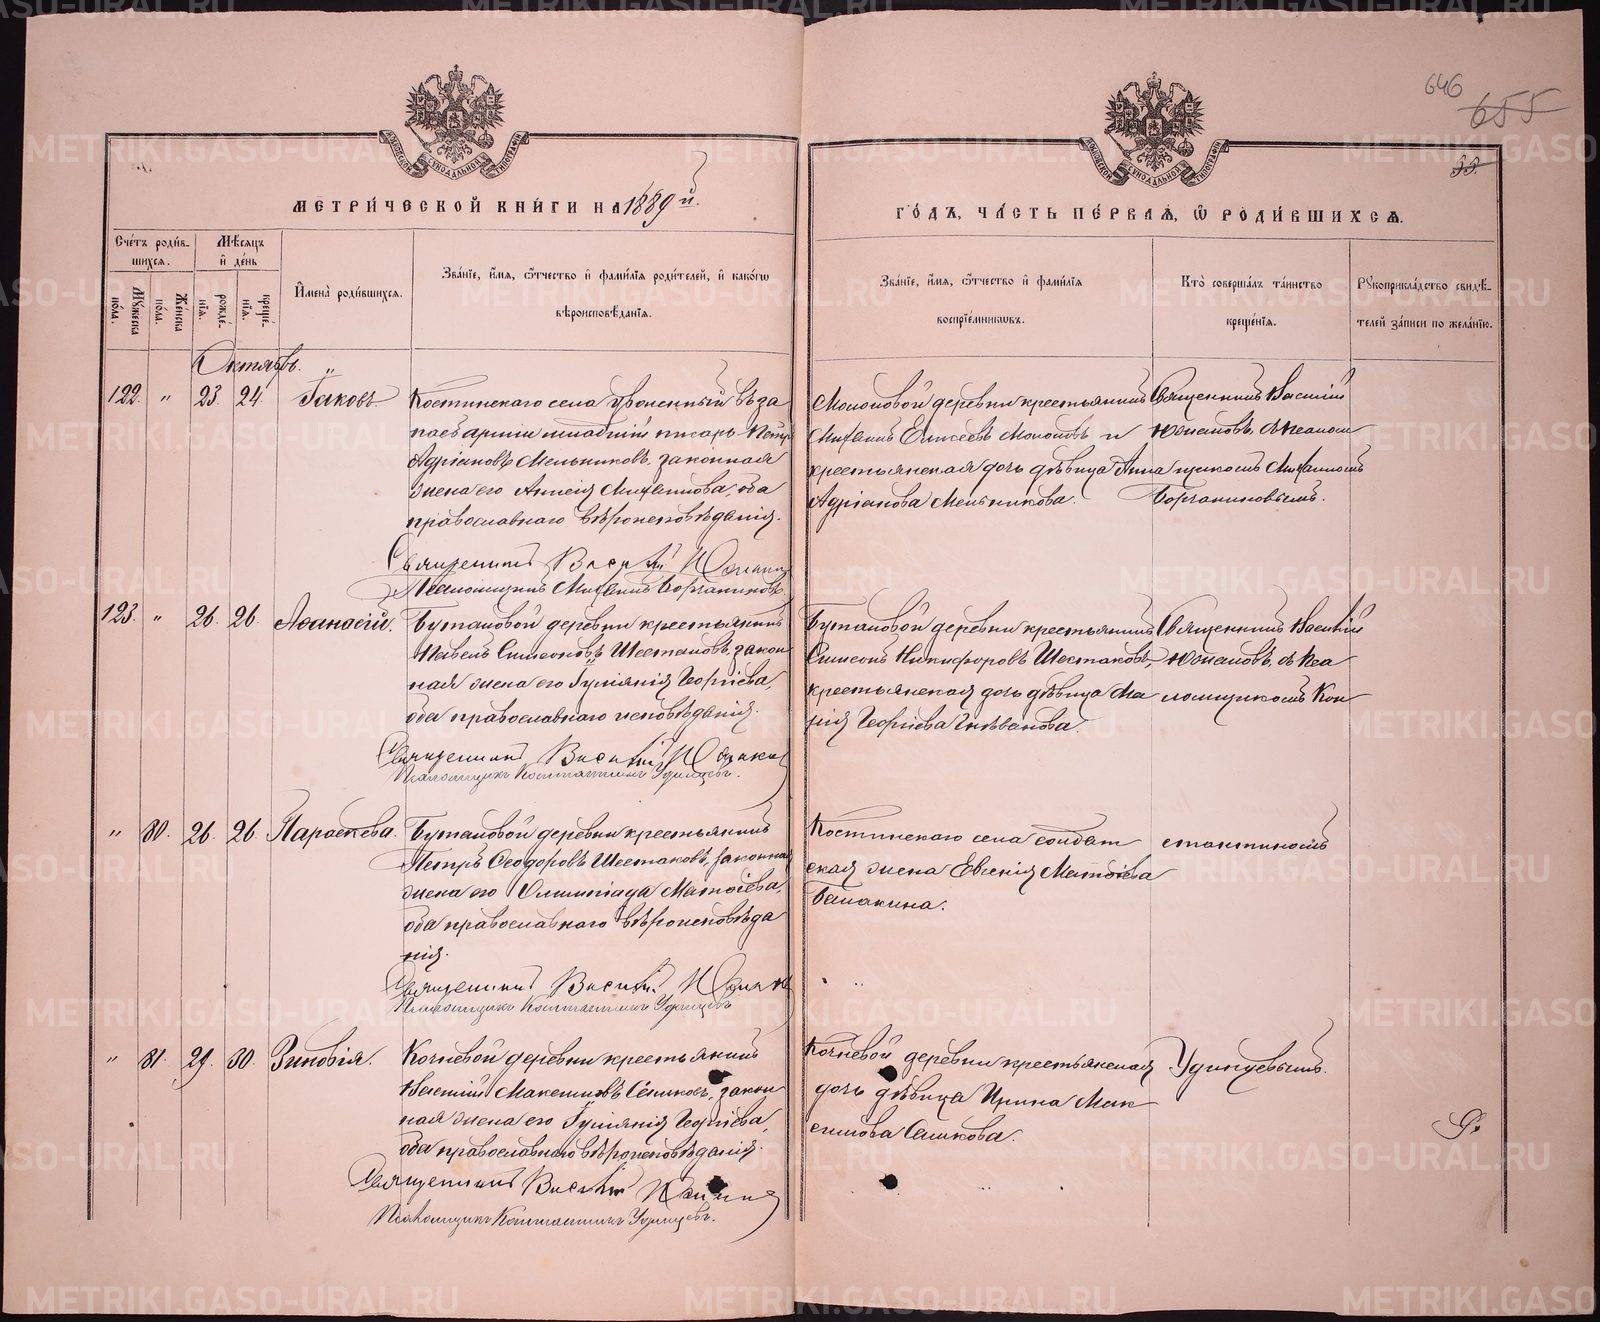 646
655
33.
МЕТРИ́ЧЕСКОЙ КНИ́ГИ НА 1889й.
ГО́ДЪ, ЧА́СТЬ ПЕ́РВАѦ, Ѡ҆ РОДИ́ВШИХСѦ.
Сче́тъ роди́в-
шихсѧ.
Мѣ́сѧцъ
и҆ де́нь
Мꙋ́жеска
по́ла.
Же́нска
по́ла.
рожде́-
нїѧ.
креще́-
нїѧ.
И҆мена̀ роди́вшихсѧ.
Зва́нїе, и҆́мѧ, ѻ҆́тчество и҆ фами́лїѧ роди́телей, и҆ како́гѡ
вѣроисповѣ́данїѧ.
Зва́нїе, и҆́мѧ, ѻ҆́тчество и҆ фами́лїѧ
воспрїе́мникѡвъ.
Кто̀ соверша́лъ та́инство
креще́нїѧ.
Рꙋкоприкла́дство свидѣ́-
телей за́писи по жела́нїю.
Октябрь.
122. " 23. 24. Іаковъ
Костинскаго села уволенный въ за
пасъ арміи младшій писарь Петръ
Адріановъ Мельниковъ, законная
жена его Анисія Михеинова, оба
православнаго вѣроисповѣданія.
Священникъ Василій
Псаломщикъ
Молоковой деревни крестьянинъ
Елисеевъ Молоковъ и
крестьянская дочь дѣвица Анна
Адріанова Мельникова.
Священникъ Василій
съ псалом
щикомъ
123. " 26. 26. Аѳанасій.
Бутаковой деревни крестьянинъ
Павелъ Симеоновъ Шестаковъ, закон
ная жена его Іуліянія Георгіева,
оба православнаго исповѣданія.
Священникъ Василій
Псаломщикъ Константинъ Удинцевъ.
Бутаковой деревни крестьянинъ
Симеонъ Никифоровъ Шестаковъ,
крестьянская дочь дѣвица Ма
рія Георгіева
Священникъ Василій
съ пса
ломщикомъ Кон
" 80. 26. 26. Параскева.
Бутаковой деревни крестьянинъ
Петръ Ѳеодоровъ Шестаковъ, законная
жена его Олимпіада Матѳіева,
оба православнаго вѣроисповѣда
нія.
Священникъ Василій
Псаломщикъ Константинъ Удинцевъ
Костинскаго села солдат
ская жена Евгенія Матѳіева
Балакина.
стантиномъ
" 81. 29. 30. Зиновія.
Кочневой деревни крестьянинъ
Василій Максимовъ законн
ная жена его Іуліянія Георгіева,
оба православнаго вѣроисповѣданія.
Священникъ Василій
Псаломщикъ Константинъ Удинцевъ.
Кочневой деревни крестьянская
дочь дѣвица Ирина Мак
симова
Удинцевымъ.
METRIKI.GASO-URAL.RU